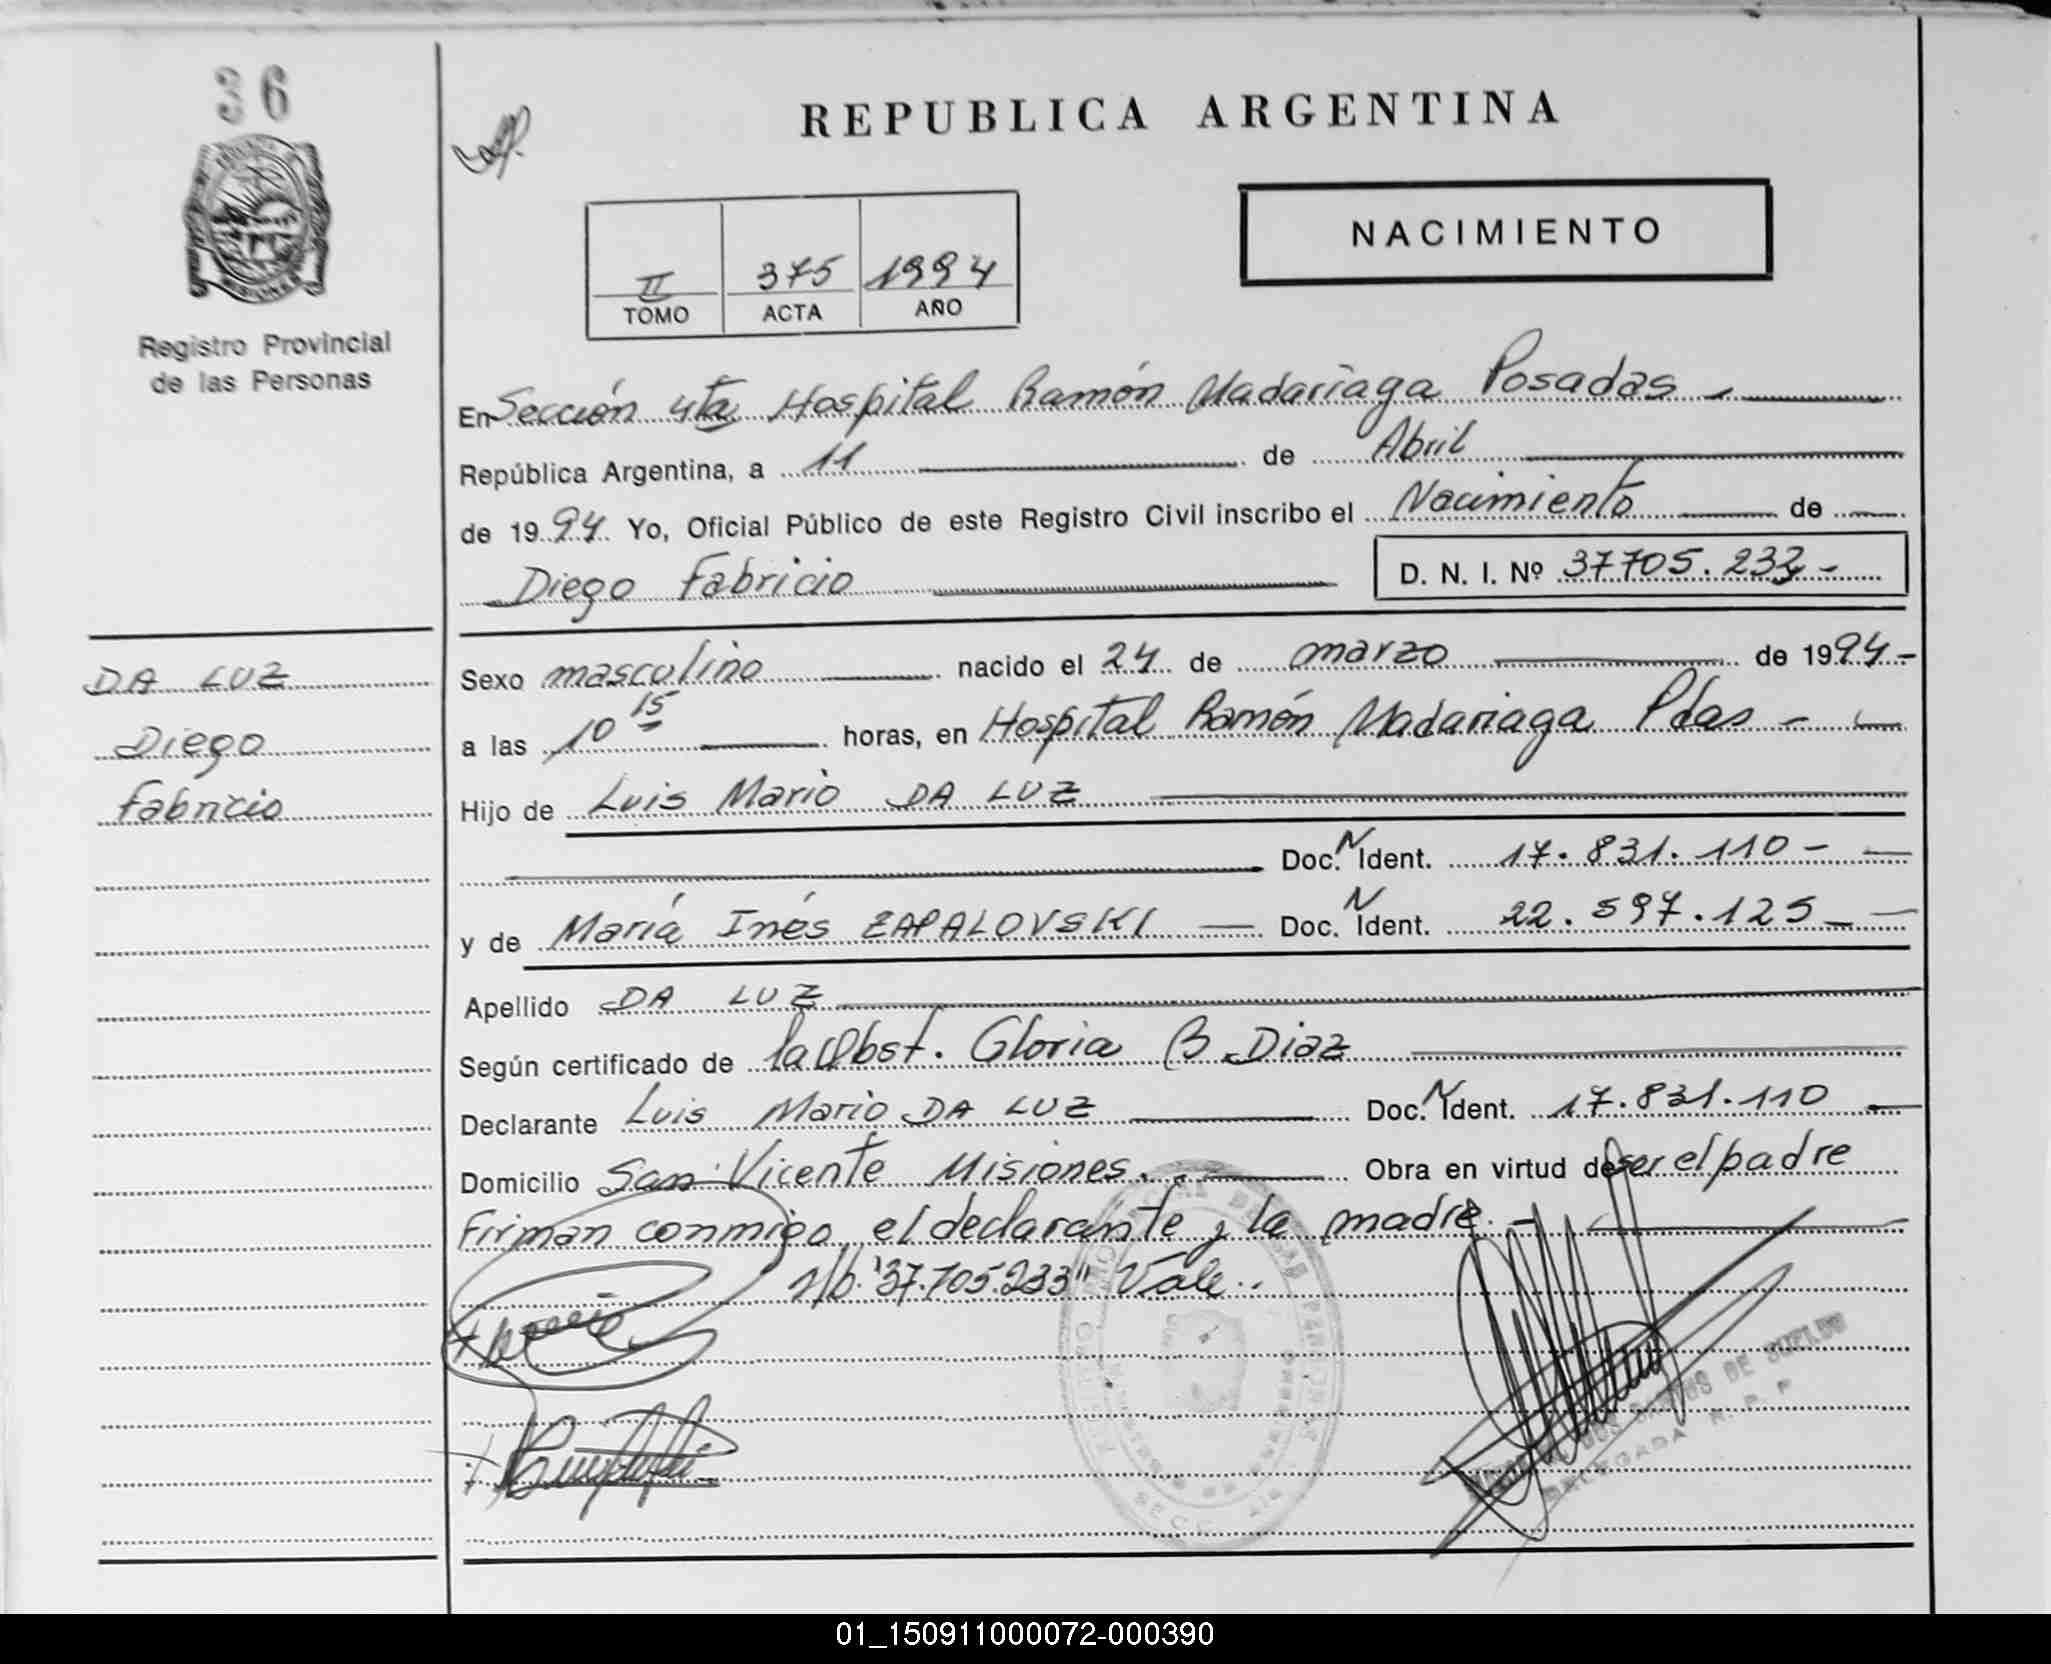 36
REPUBLICA ARGENTINA
NACIMIENTO
II 375 1994
TOMO ACTA AÑO
MISIONES
Registro Provincial
de las Personas
En Sección 4ta Hospital Ramón Madariaga Posadas -
República Argentina, a 11 de Abril
de 1994 Yo, Oficial Público de este Registro Civil inscribo el Nacimiento de
Diego Fabricio D. N. I. Nº 37705.233-
DA LUZ
Diego
Fabricio
Sexo masculino nacido el 24 de marzo de 1994-
a las 10 15 horas, en Hospital Ramón Madariaga Pdas -
Hijo de Luis Mario DA LUZ
Doc. N Ident. 17.831.110-
y de María Inés ZAPALOVSKI Doc. N Ident. 22.597.125-
Apellido DA LUZ
Según certificado de la Obst. Gloria B Diaz
Declarante Luis Mario DA LUZ Doc. N Ident. 17.831.110
Domicilio San Vicente Misiones. Obra en virtud de ser el padre
Firman conmigo el declarante y la madre.-
s/b "37.705.233" Vale..
DOS SANTOS DE SUELDO
DELEGADA R. P. P
01_150911000072-000390